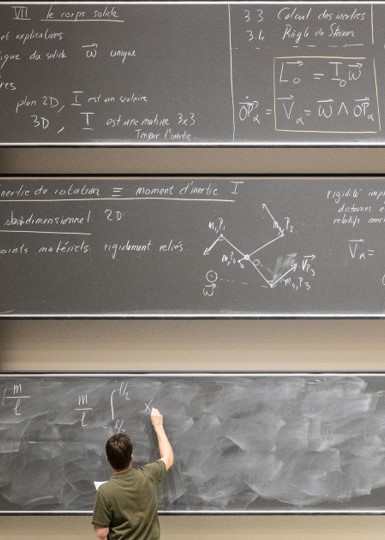 VII le corps solide
et applications
ique du solide w⃗ unique
res
plan 2D, I est un scalaire
3D, I est une matrice 3x3
3.3 Calcul des inerties
3.4 Règle de Steiner
L⃗o = Ioω⃗
V⃗α = ω⃗ ∧ OP⃗α
inertie de rotation ≡ moment d'inertie I
bidimensionnel 2D
oints matériels rigidement reliés
m1P1
m2P2
m4P4
O
V⃗P3
m3, P3
ω⃗
rigidité
V⃗α =
m/l
m/l ∫ l/2
x